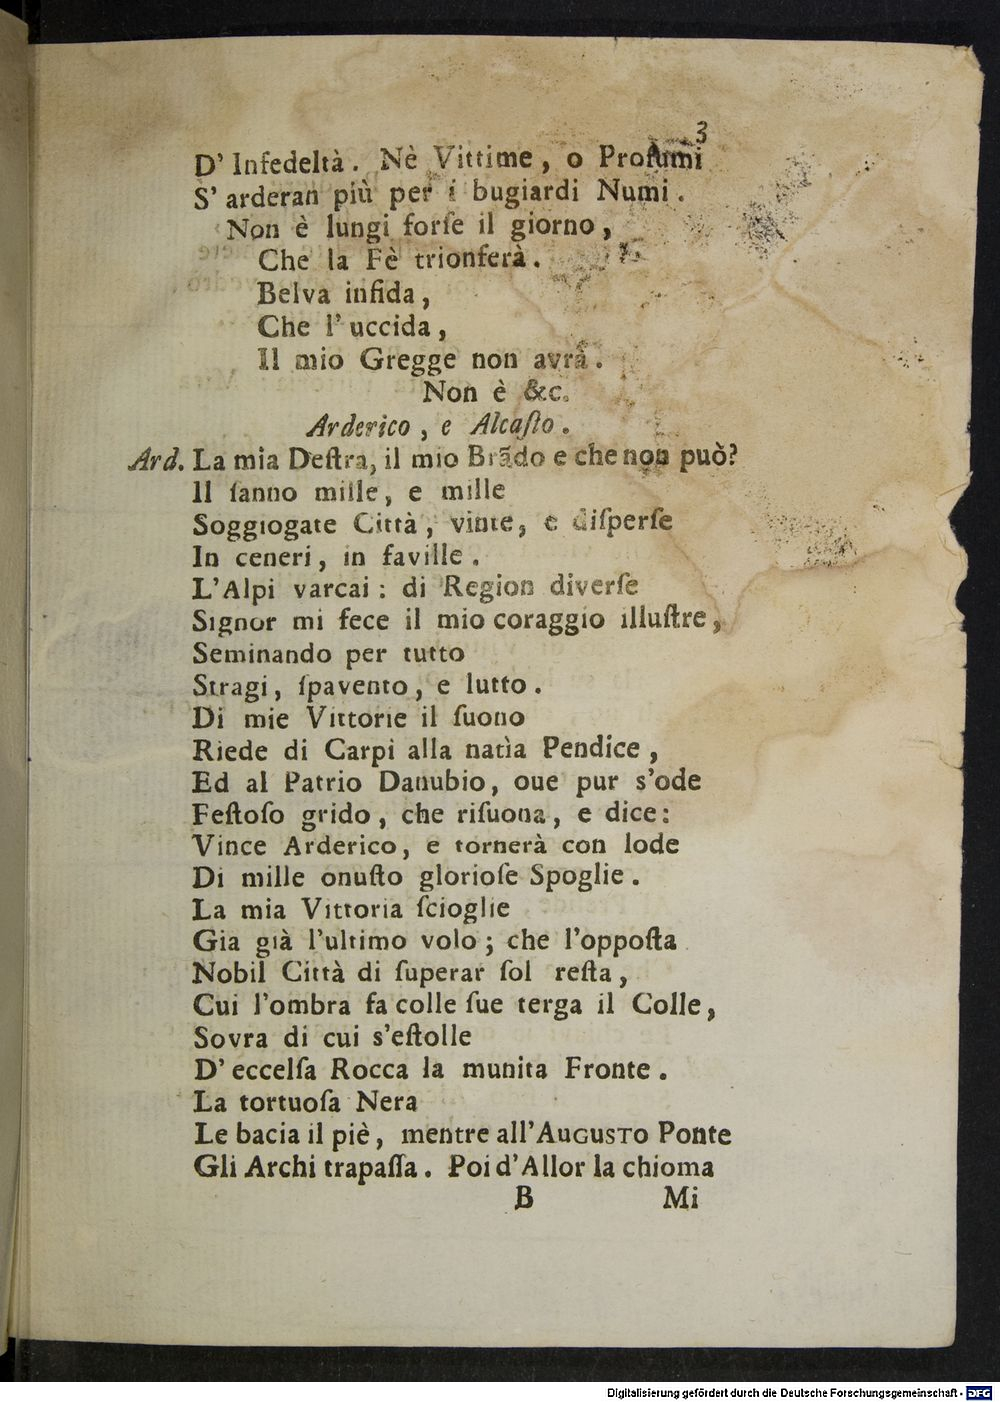 3
D' Infedeltà. Nè Vittime, o Profumi
S' arderan più per i bugiardi Numi.
Non è lungi forſe il giorno,
Che la Fè trionferà.
Belva infida,
Che l' uccida,
Il mio Gregge non avrà.
Non è &c.
Arderico, e Alcaſto.
Ard. La mia Deſtra, il mio Brãdo e che non può?
Il ſanno mille, e mille
Soggiogate Città, vinte, e diſperſe
In ceneri, in faville.
L'Alpi varcai: di Region diverſe
Signor mi fece il mio coraggio illuſtre,
Seminando per tutto
Stragi, ſpavento, e lutto.
Di mie Vittorie il ſuono
Riede di Carpi alla natìa Pendice,
Ed al Patrio Danubio, oue pur s'ode
Feſtoſo grido, che riſuona, e dice:
Vince Arderico, e tornerà con lode
Di mille onuſto glorioſe Spoglie.
La mia Vittoria ſcioglie
Gia già l'ultimo volo; che l'oppoſta
Nobil Città di ſuperar ſol reſta,
Cui l'ombra fa colle ſue terga il Colle,
Sovra di cui s'eſtolle
D' eccelſa Rocca la munita Fronte.
La tortuoſa Nera
Le bacia il piè, mentre all'AUGUSTO Ponte
Gli Archi trapaſſa. Poi d'Allor la chioma
B Mi
Digitalisierung gefördert durch die Deutsche Forschungsgemeinschaft - DFG